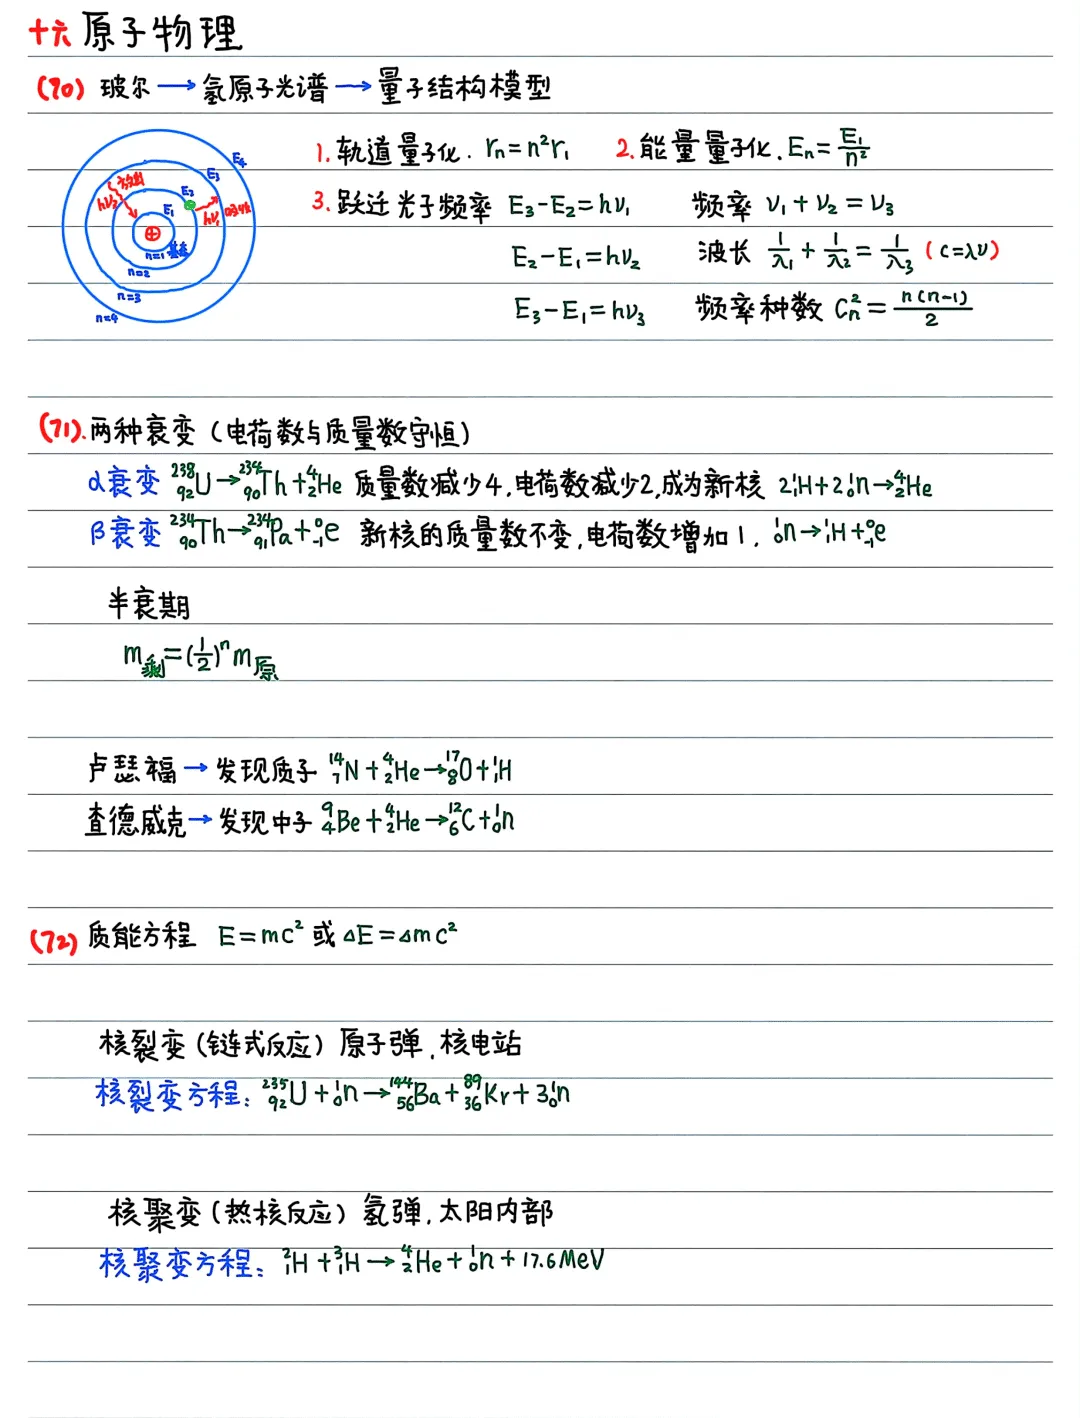 十六 原子物理
(70) 玻尔 → 氢原子光谱 → 量子结构模型
1. 轨道量子化. rₙ=n²r₁ 2. 能量量子化. Eₙ=E₁/n²
3. 跃迁光子频率 E₃-E₂=hν₁ 频率 ν₁+ν₂=ν₃
E₂-E₁=hν₂ 波长 1/λ₁+1/λ₂=1/λ₃ (c=λν)
E₃-E₁=hν₃ 频率种数 Cₙ²=n(n-1)/2
E₄
E₃
放出
E₂
hν₂
E₁
hν₁ 吸收
n=1 基态
n=2
n=3
n=4
(71). 两种衰变（电荷数与质量数守恒）
α衰变 ²³⁸₉₂U→²³⁴₉₀Th+⁴₂He 质量数减少4,电荷数减少2,成为新核 2¹₁H+2¹₀n→⁴₂He
β衰变 ²³⁴₉₀Th→²³⁴₉₁Pa+⁰₋₁e 新核的质量数不变,电荷数增加1. ¹₀n→¹₁H+⁰₋₁e
半衰期
m剩=(1/2)ⁿm原
卢瑟福 → 发现质子 ¹⁴₇N+⁴₂He→¹⁷₈O+¹₁H
查德威克 → 发现中子 ⁹₄Be+⁴₂He→¹²₆C+¹₀n
(72) 质能方程 E=mc² 或 △E=△mc²
核裂变（链式反应）原子弹,核电站
核裂变方程: ²³⁵₉₂U+¹₀n→¹⁴⁴₅₆Ba+⁸⁹₃₆Kr+3¹₀n
核聚变（热核反应）氢弹,太阳内部
核聚变方程: ²₁H+³₁H→⁴₂He+¹₀n+17.6MeV